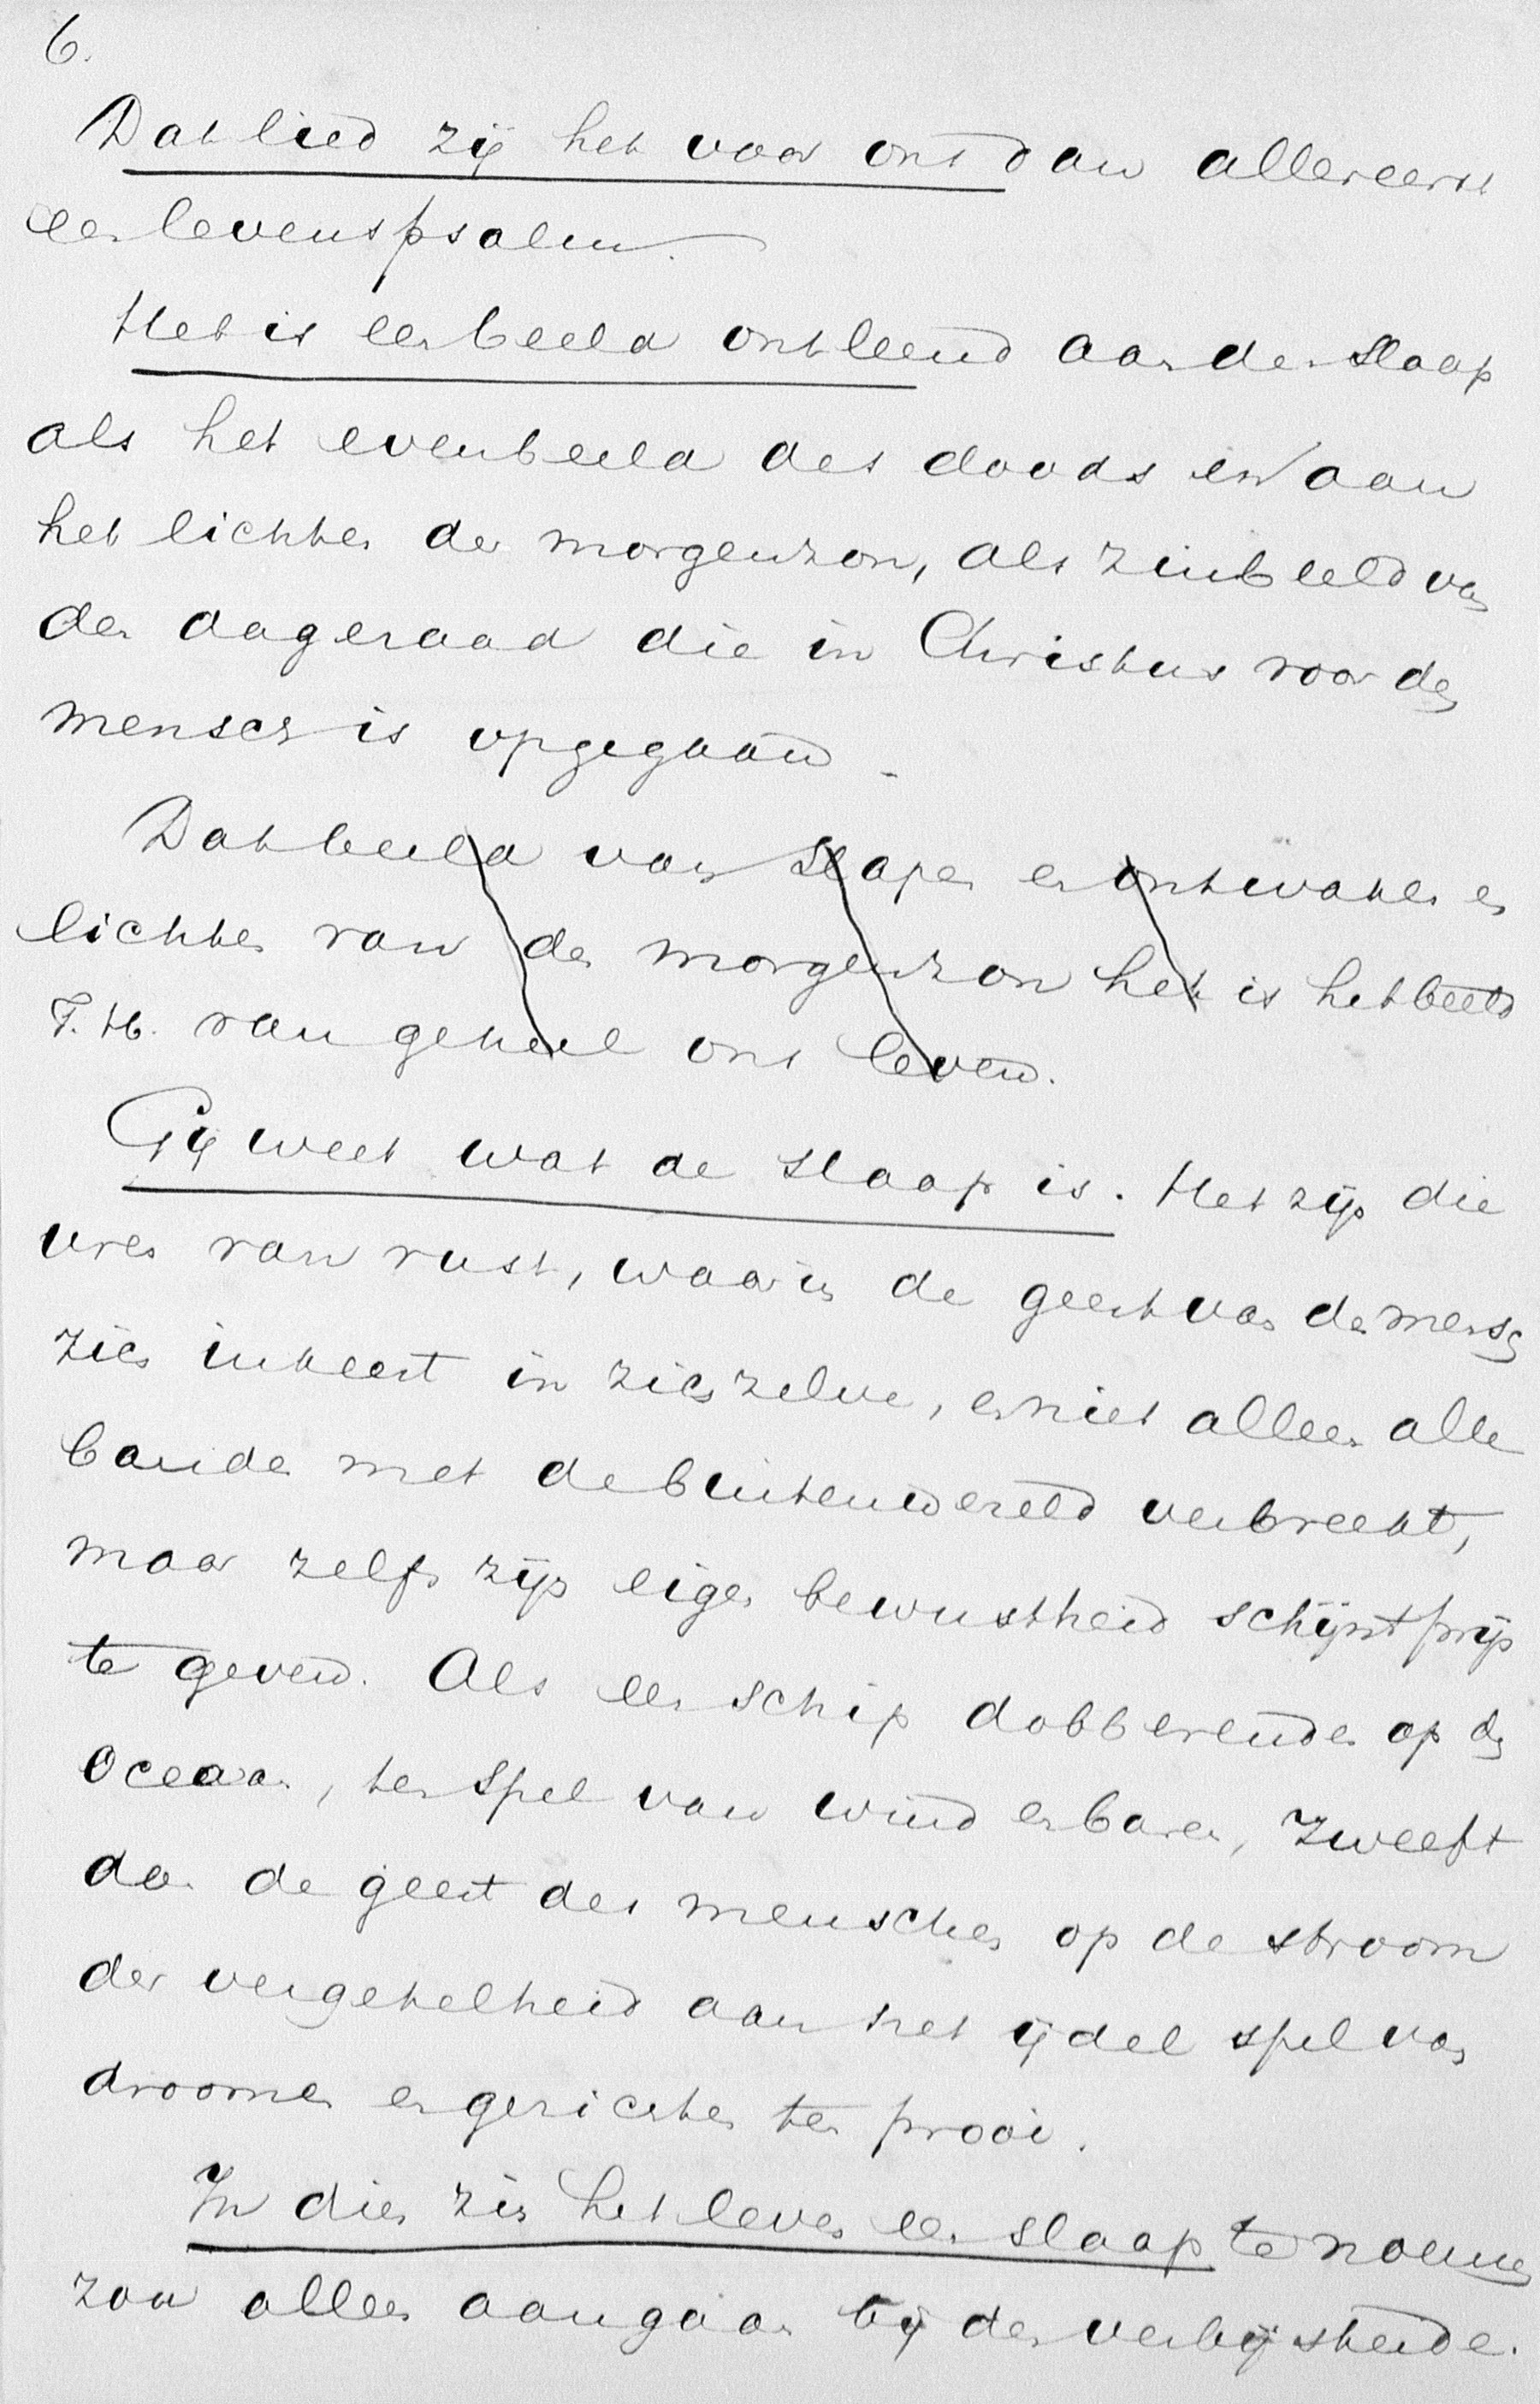 6.
Dat lied zij het voor ons dan allereerst
een levenspsalm.
Het is een beeld ontleend aan den slaap
als het evenbeeld des doods en aan
het lichten der morgenzon, als zinbeeld van
den dageraad die in Christus voor den
mensch is opgegaan.
Dat beeld van slapen en ontwaken en
lichten van de morgenzon het is het beeld
T. H. van geheel ons leven.
Gij weet wat de slaap is. Het zijn die
uren van rust, waarin de geest van den mensch
zich inkeert in zich zelve, en niet alleen alle
banden met de buitenwereld verbreekt,
maar zelfs zijn eigen bewustheid schijnt prijs
te geven. Als een schip dobberende op den
Oceaan, ten spel van wind en baren, zweeft
dan de geest des menschen op de stroom
der vergetelheid aan het ijdel spel van
droomen en gezichten ten prooi.
In dien zin het leven een slaap te noemen
zou alleen aangaan bij den verbijsterde.